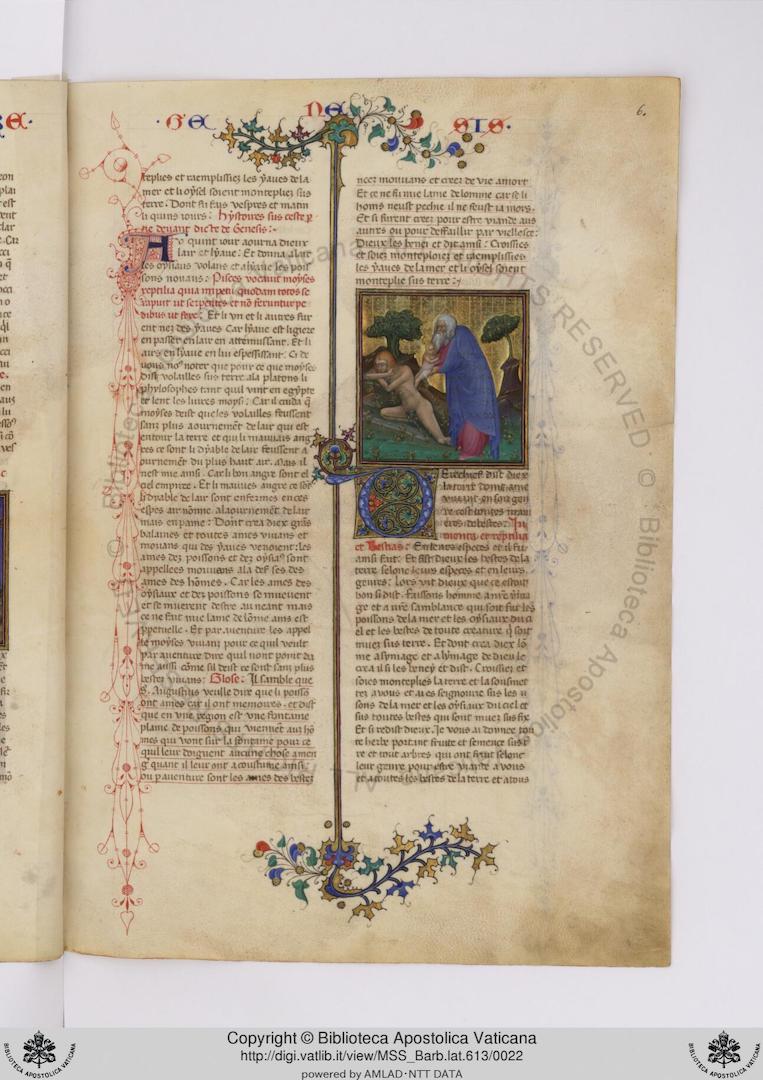 · GE NE SIS ·
6.
replies et raemplissiez les yaues de la
mer et li oysel soient monteplies sus
terre. Dont fu faus vespres et matin
li quins iours: hystoires sus ceste
devant dicte de Genesis:
Au quint iour aourna dieux
lair et lyaue: Et donna a lair
les oysiaus volans et a lyaue les pois
sons nouans: Pisces vocavit moyses
reptilia quia impetu quodam totos se
rapiunt ut serpentes et non feruntur pe
dibus ut fere: Et li un et li autres fur
ent nez des yaues Car lyaue est ligiere
en passer en lair en attemissant. Et li
airs en lyaue en lui espessissant. Ci de
vons nous noter que pour ce que moyses
dist volailles sus terre. ala platons li
phylosophes tant quil vint en egypte
et lent les livres moysi: Car il cuida que
moyses deist que les volailles feussent
sans plus aournement de lair qui est
entour la terre et que li mauvais ang
res ce sont li dyable de lair feussent a
ournement du plus haut air. Mais il
nest mie ainsi. Car li bon angre sont el
ciel empire. Et li mauves angre ce sont
li dyable de lair sont enfermes en ces
espes air nomme a laournement de lair
mais en paine: Dont crea diex grans
balaines et toutes ames vivans et
mouans qui des yaues venoient: les
ames dez poissons et dez oysiaus sont
appellees mouvans a la def ses des
ames des hommes. Car les ames des
oysiaux et dez poissons se muevent
et se muerent destre au neant mais
ce ne fait mie lame de lomme ains est
perpetuelle. Et par aventure les appel
le moyses vivans pour ce quil veult
par aventure dire quil nont point da
me aussi comme sil deist ce sont sans plus
bestes vivans: Glose: Il samble que
S. Augustins veulle dire que li poisson
ont ames car il ont memoires. et dist
que en une region est une fontaine
plaine de poissons qui viennent aus hom
mes qui vont sur la fontaine pour ce
quil leur doignent aucune chose a men
gier quant il leur ont acoustume ainsi
ou par aventure sont les ames des bestez
neez mouvans et creez de vie a mort
Et ce ne fu mie lame de lomme car se li
homs neust pechie il ne feust ia mors.
Et si furent creez pour estre viande aus
autres ou pour deffaillir par viellesce:
Dieux les benei et dit ainsi: Croissies
et soiez monteploiez et raemplissies
les yaues de la mer et li oysel soient
monteplie sus terre:
Derechief dist diex
la terre doint ame
vivant en son gen
re cest toutes mani
eres de bestes: Iu
menta et reptilia
et bestias: En leurs especes et il fu
ainsi fait: Et fist dieux les bestes de la
terre selonc leurs especes et en leurs
genres: Lors vit dieux que ce estoit
bon si dist. Faissons homme a nre yma
ge et a nre samblance qui soit sus les
poissons de la mer et les oysiaus du ci
el et les bestes de toute creature qui sont
muez sus terre. Et dont crea diex lom
me a symage et a lymage de dieu le
crea il si les beney et dist. Croissiez et
soies monteplies la terre et la sousmet
tez a vous et aies seignourie sus les p
sons de la mer et les oysiaus du ciel et
sus toutes bestes qui sont muez sus terre
Et si redist dieux. Je vous ai donnee tou
te herbe portant fruite et semence sus ter
re et touz arbres qui ont fruit selonc
leur genre pour estre viande a vous
et a toutes les bestes de la terre et a tous
Copyright © Biblioteca Apostolica Vaticana
http://digi.vatlib.it/view/MSS_Barb.lat.613/0022
powered by AMLAD·NTT DATA
BIBLIOTECA APOSTOLICA VATICANA
BIBLIOTECA APOSTOLICA VATICANA